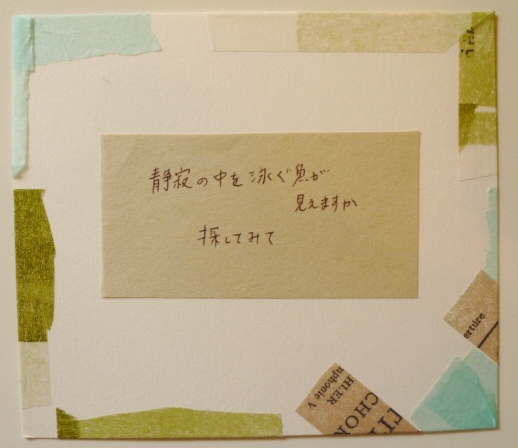 静寂の中を泳ぐ魚が
見えますか
探してみて
erture
HLER
nphonie V
CHOR